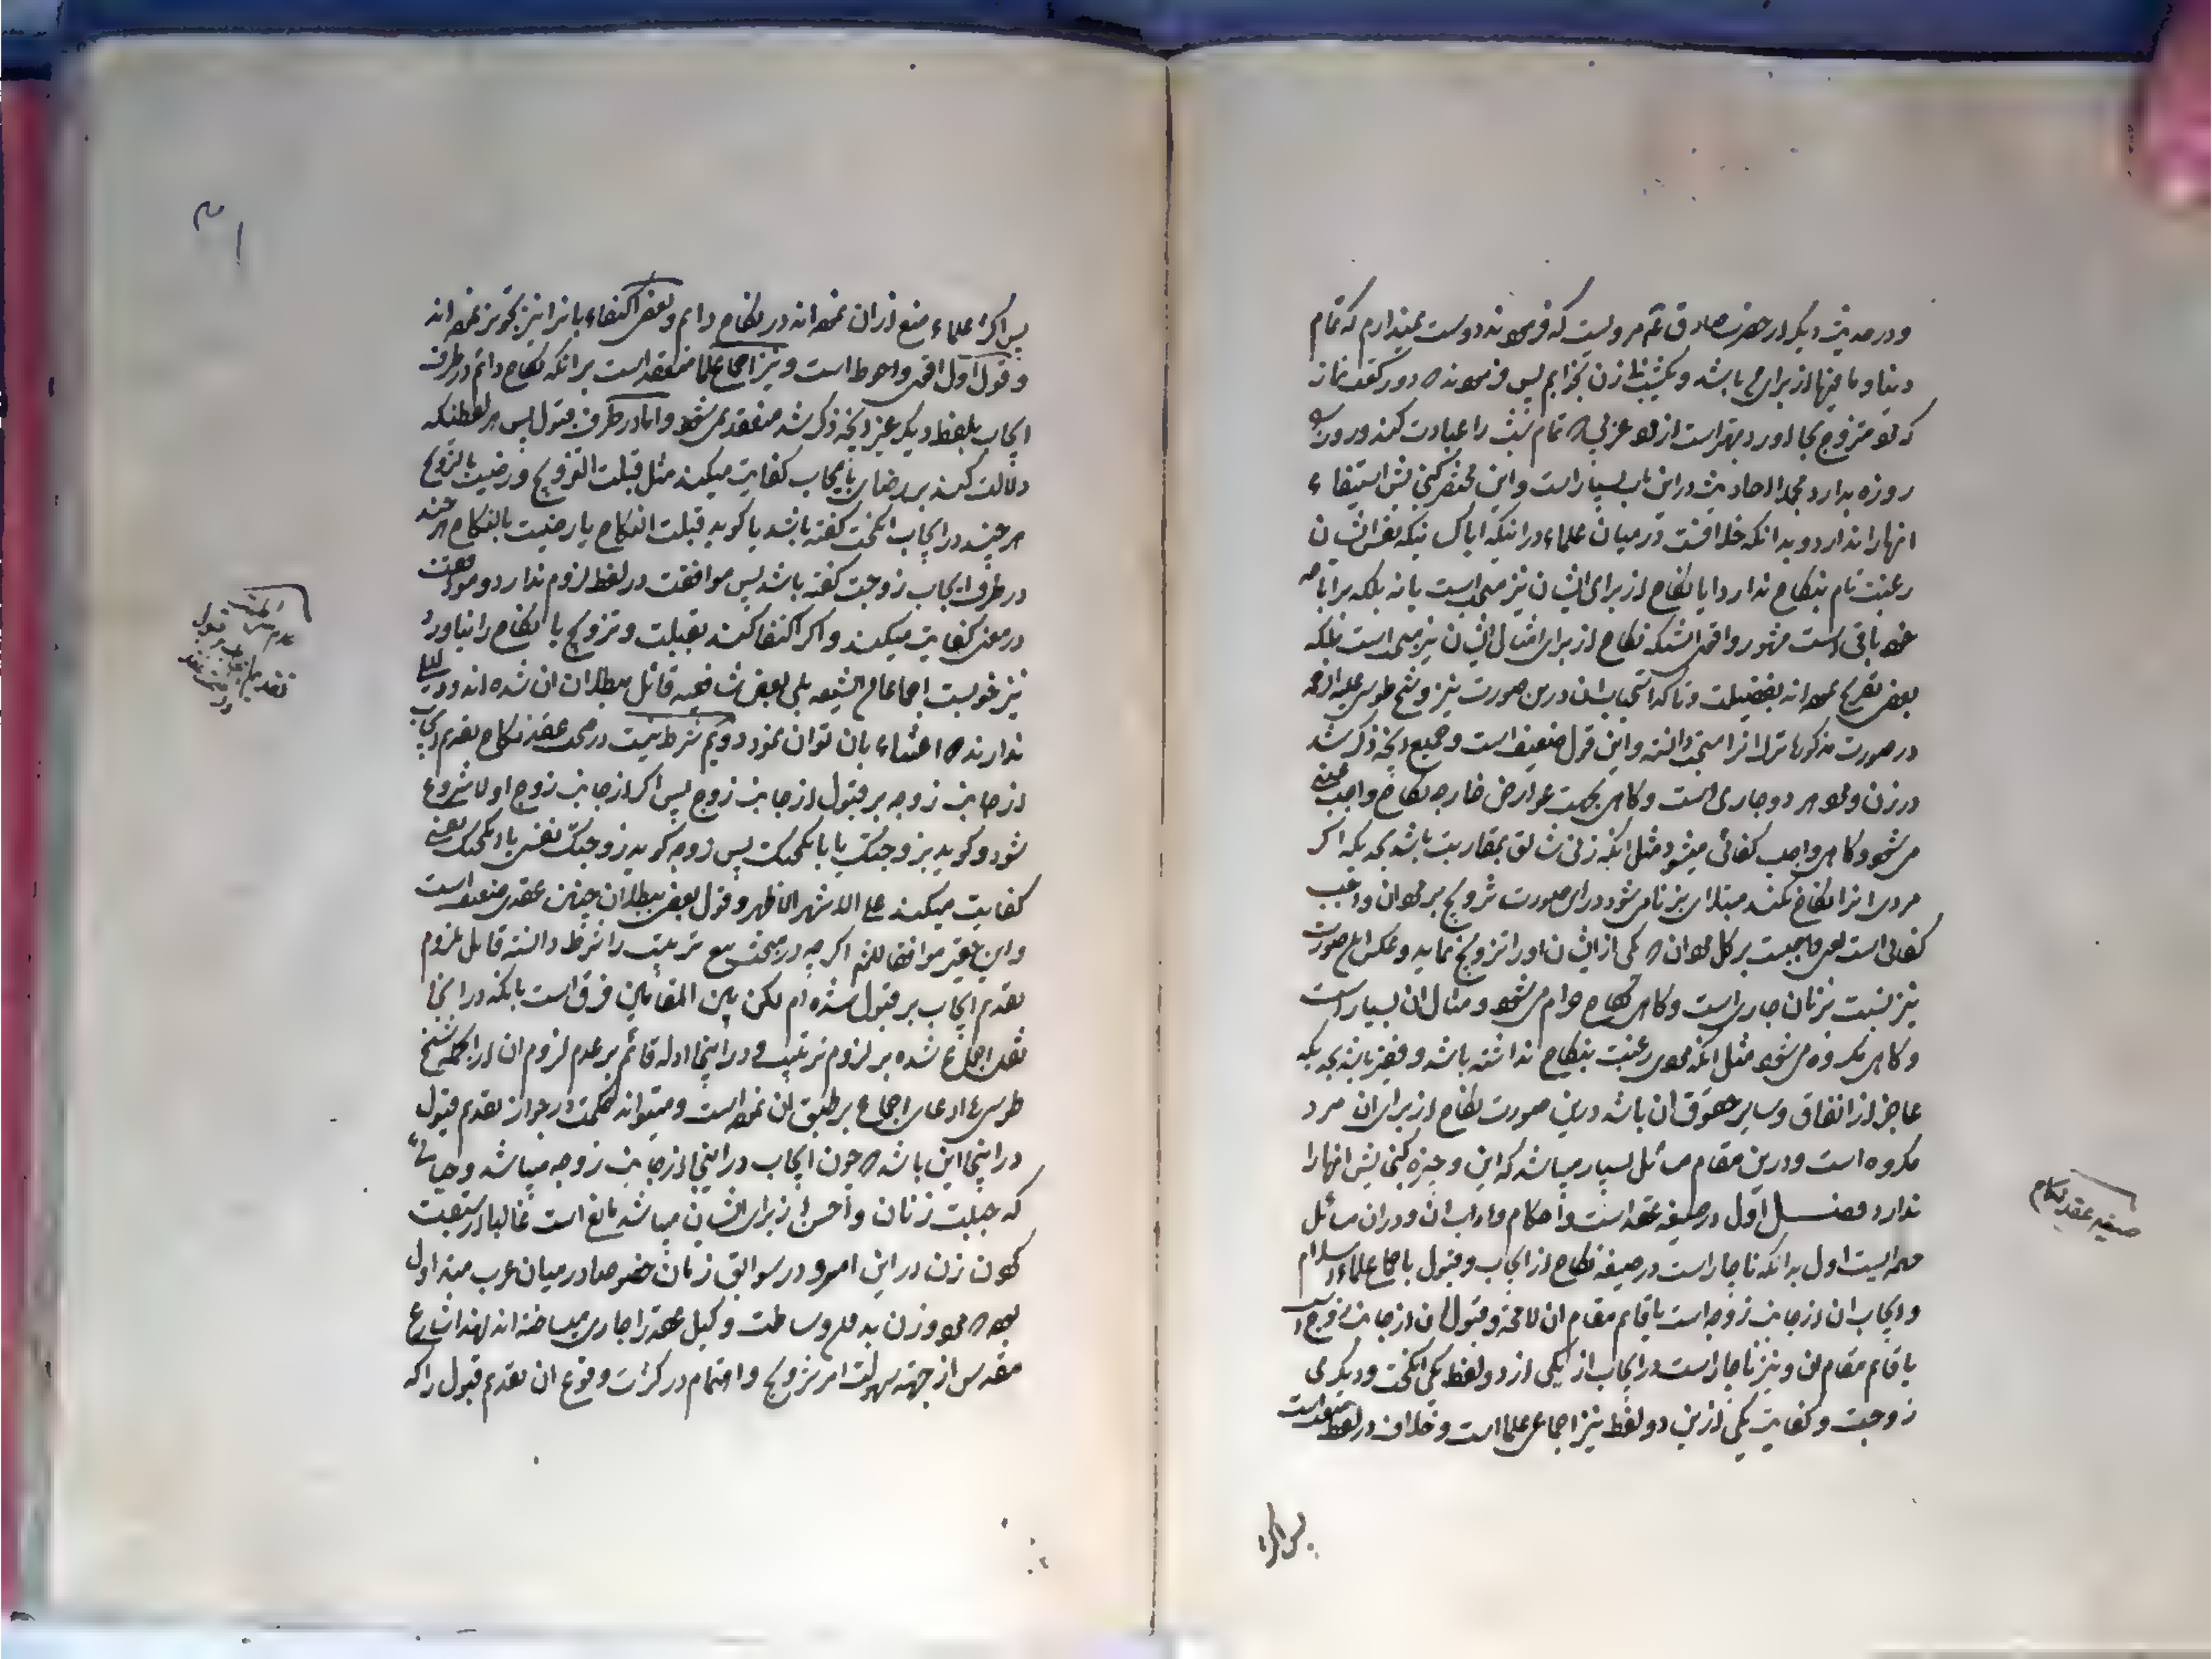 و در حدیث دیگر از حضرت صادق ع مرویست که فرمودند دوست نمیدارم که تمام
دنیا و ما فیها از برای من باشد و یکشب بی زن بخوابم پس فرمودند که دو رکعت نماز
که مرد متزوج بجا اورد بهتر است از مرد عزبی که تمام شب را عبادت کند و روز
روزه بدارد مجملا احادیث در این باب بسیار است و این مختصر کنجایش استیفاء
انها را ندارد و بدانکه خلافست در میان علماء در اینکه ایا کسانیکه نفس ایشان
رغبت تام بنکاح ندارد ایا نکاح از برای ایشان نیز مستحب است یا نه بلکه بر اباحه
خود باقی است مشهور و اقوی انستکه نکاح از برای امثال ایشان نیز مستحب است بلکه
بعضی تصریح نموده اند بفضیلت و تاکد استحباب ان درین صورت نیز و شیخ طوسی علیه الرحمه
در صورت مذکوره ترک انرا مستحب دانسته و این قول ضعیف است و جمیع انچه ذکر شد
در زن و مرد هر دو جاری است و کاهی بجهت عوارض خارجه نکاح واجب عینی
میشود و کاهی واجب کفائی میشود مثل انکه زنی شائق بمقاربت باشد بحدیکه اکر
مردی انرا نکاح نکند مبتلا بزنا میشود در این صورت تزویج بر مردان واجب
کفائی است یعنی واجبست بر کل مردان که یکی از ایشان او را تزویج نماید و عکس این صورت
نیز نسبت بزنان جاریست و کاهی نکاح حرام میشود و مثال ان بسیار است
و کاهی مکروه میشود مثل انکه مردی رغبت بنکاح نداشته باشد و فقیر باشد بحدیکه
عاجز از انفاق و سایر حقوق ان باشد درین صورت نکاح از برای ان مرد
مکروه است و درین مقام مسائل بسیار میباشد که این وجیزه کنجایش انها را
ندارد فصل اول در صیغه عقد است و احکام و اداب ان و در ان مسائل
چند است اول بدانکه ناچار است در صیغه نکاح از ایجاب و قبول باجماع علماء اسلام
و ایجاب ان از جانب زوجه است یا قائم مقام ان لا محاله و قبول ان از جانب زوج است
یا قائم مقام ان و نیز ناچار است در ایجاب از یکی از دو لفظ یکی انکحت و دیکری
زوجت و کفایت یکی ازین دو لفظ نیز اجماعی علما است و خلاف در لفظ متعت است
پس اکثر
صیغه عقد نکاح
پس اکثر علماء منع از ان نموده اند در نکاح دایم و بعضی اکتفاء بانرا نیز تجویز نموده اند
و قول اول اقوی و احوط است و نیز اجماع علما منعقد است بر انکه نکاح دائم در طرف
ایجاب بلفظ دیکر غیر انچه ذکر شد منعقد نمیشود و اما در طرف قبول پس هر لفظی که
دلالت کند بر رضای بایجاب کفایت میکند مثل قبلت التزویج و رضیت بالتزویج
هر چند در ایجاب انکحت کفته باشد یا کوید قبلت النکاح یا رضیت بالنکاح هر چند
در طرف ایجاب زوجت کفته باشد پس موافقت در لفظ لزوم ندارد و موافقت
در معنی کفایت میکند و اکر اکتفا کند بقبلت و تزویج یا نکاح را نیاورد
نیز خوبست اجماعا من الشیعه بلی بعض شافعیه قائل ببطلان ان شده اند و دلیلی
ندارند که اعتناء بان توان نمود دویم شرط نیست در صحت عقد نکاح تقدیم ایجاب
از جانب زوجه بر قبول از جانب زوج پس اکر از جانب زوج اولا شروع
شود و کوید تزوجتک یا نکحتک پس زوجه کوید زوجتک نفسی یا انکحتک نفسی
کفایت میکند علی الاشهر الاظهر و قول بعض ببطلان چنین عقدی ضعیف است
و این فقیر موافقا للقوم اکر چه در مبحث بیع ترتیب را شرط دانسته قائل بلزوم
تقدیم ایجاب بر قبول شده ام لکن بین المقامین فرق است بانکه در انجا
نقل اجماع شده بر لزوم ترتیب و در اینجا ادله قائم بر عدم لزوم ان بلکه شیخ
طوسی ع ادعای اجماع بر طبق ان نموده است و میتواند حکمت در جواز تقدیم قبول
در اینجا این باشد که چون ایجاب در اینجا از جانب زوجه میباشد و حیائی
که جبلت زنان و احسن از برای ایشان میباشد مانع است غالبا از سبقت
کردن زن در این امر و در سوابق زمان خصوصا در میان عرب متداول
بوده که مرد و زن بدون وساطت وکیل عقد را جاری میساخته اند لهذا شارع
مقدس از جهة سهولت امر تزویج و اهتمام در کثرت وقوع ان تقدیم قبول را که